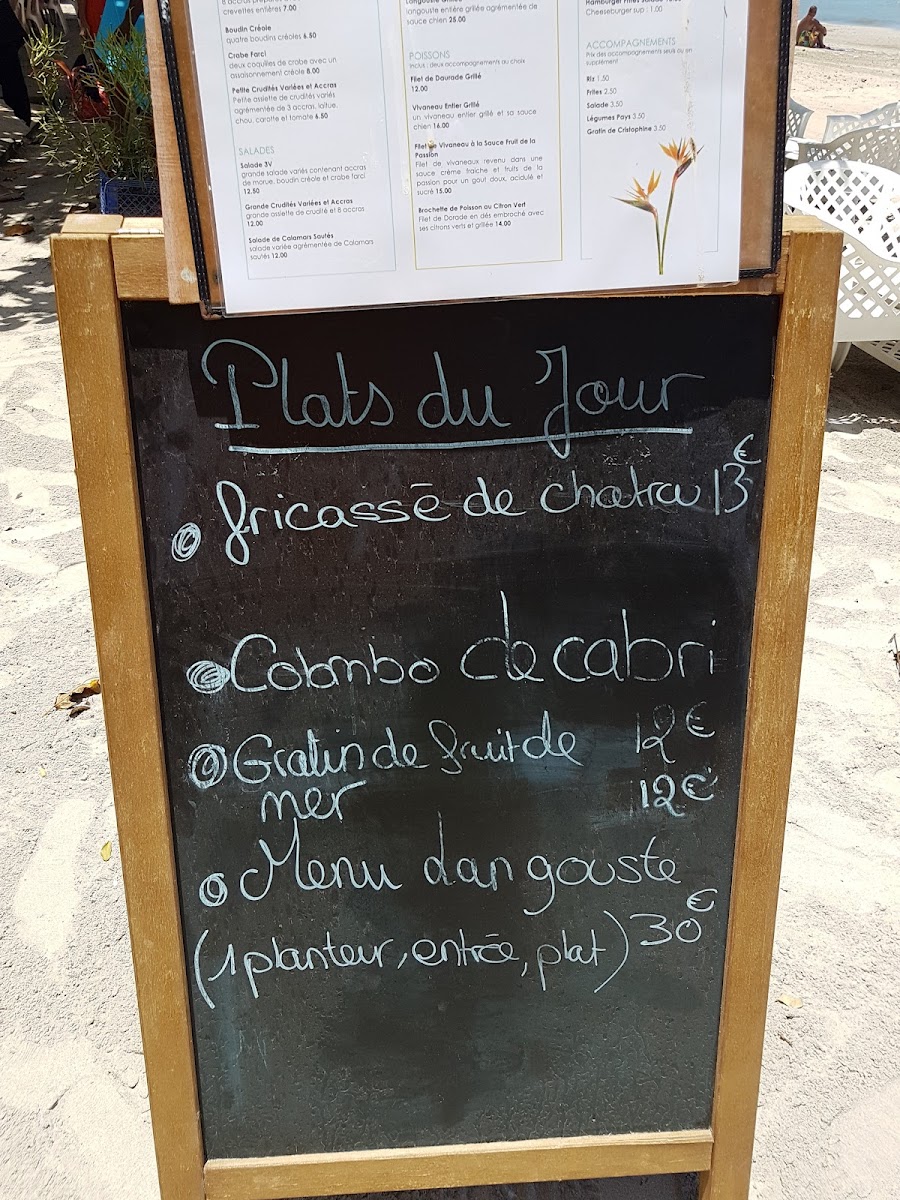 crevettes entières 7.00
Boudin Créole
quatre boudins créoles 6.50
Crabe Farci
deux coquilles de crabe avec un
assaisonnement créole 8.00
Petite Crudités Variées et Accras
Petite assiette de crudités variés
agrémentée de 3 accras, laitue,
chou, carotte et tomate 6.50
SALADES
Salade 3V
grande salade variés contenant accras
de morue, boudin créole et crabe farci
12.50
Grande Crudités Variées et Accras
grande assiette de crudité et 8 accras
12.00
Salade de Calamars Sautés
salade variée agrémentée de Calamars
sautés 12.00
langouste entière grillée agrémentée de
sauce chien 25.00
POISSONS
Inclus : deux accompagnements au choix
Filet de Daurade Grillé
12.00
Vivaneau Entier Grillé
un vivaneau entier grillé et sa sauce
chien 16.00
Filet de Vivaneau à la Sauce Fruit de la
Passion
Filet de vivaneaux revenu dans une
sauce crème fraiche et fruits de la
passion pour un gout doux, acidulé et
sucré 15.00
Brochette de Poisson au Citron Vert
Filet de Dorade en dés embroché avec
ses citrons verts et grillée 14.00
Cheeseburger sup : 1.00
ACCOMPAGNEMENTS
Prix des accompagnements seuls ou en
supplément
Riz 1.50
Frites 2.50
Salade 3.50
Légumes Pays 3.50
Gratin de Cristophine 3.50
Plats du Jour
fricassé de chatrou 13€
Colombo de cabri
12€
Gratin de fruit de
mer 12€
Menu dangouste
(1 planteur, entrée, plat) 30€